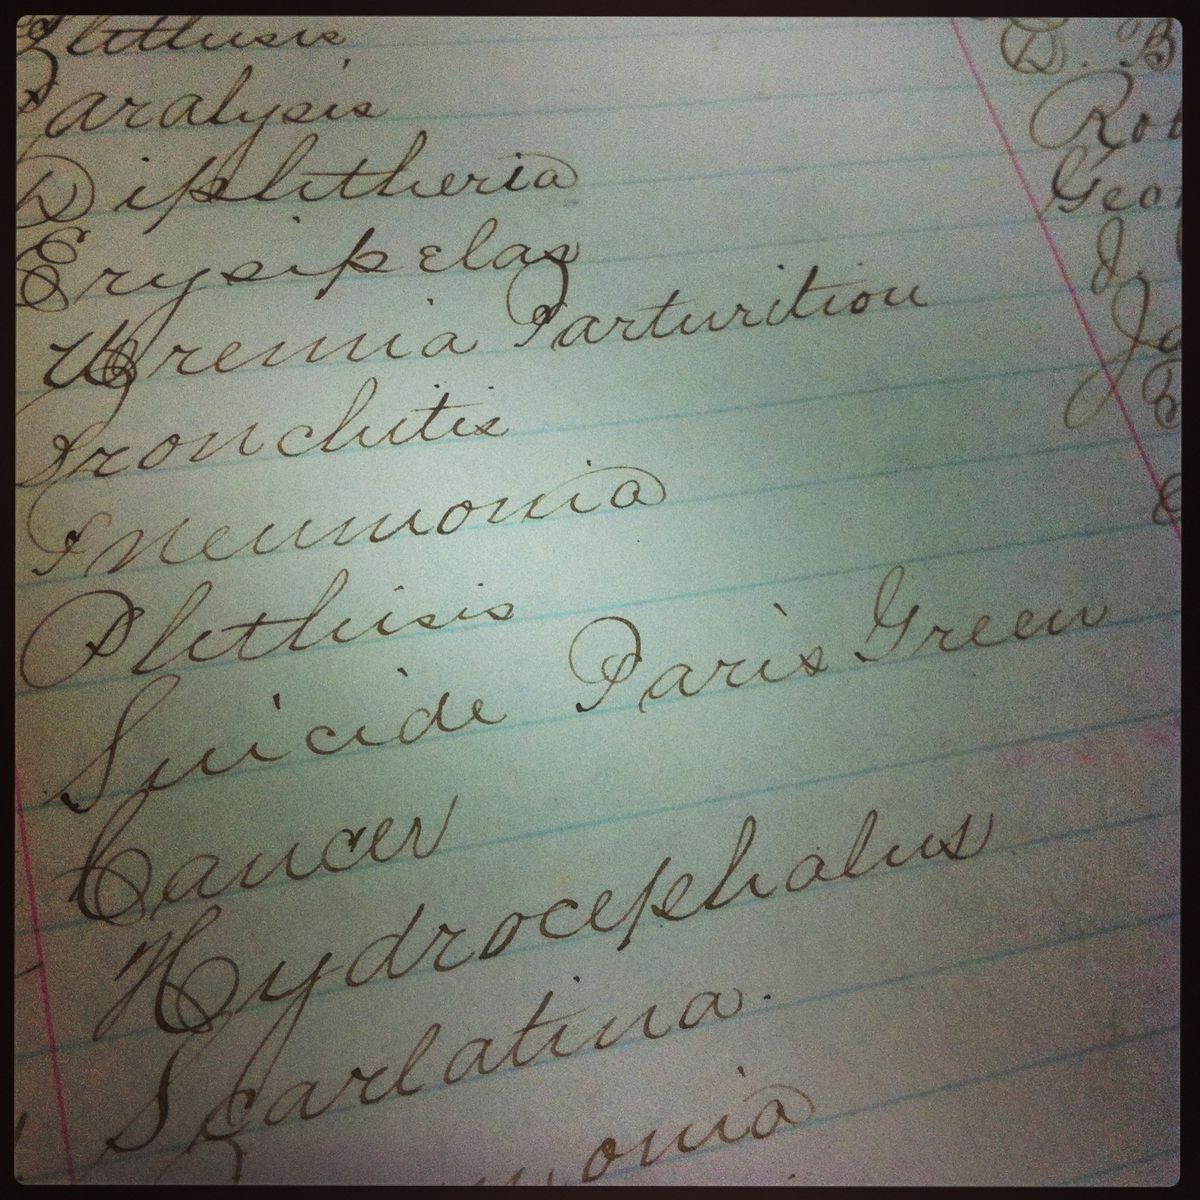 Phthisis D. B
Paralysis Rob
Diphtheria Geor
Erysipelas J.
Uremia Parturition Ja
Bronchitis
Pneumonia
Phthisis
Suicide Paris Green
Cancer
Hydrocephalus
Scarlatina.